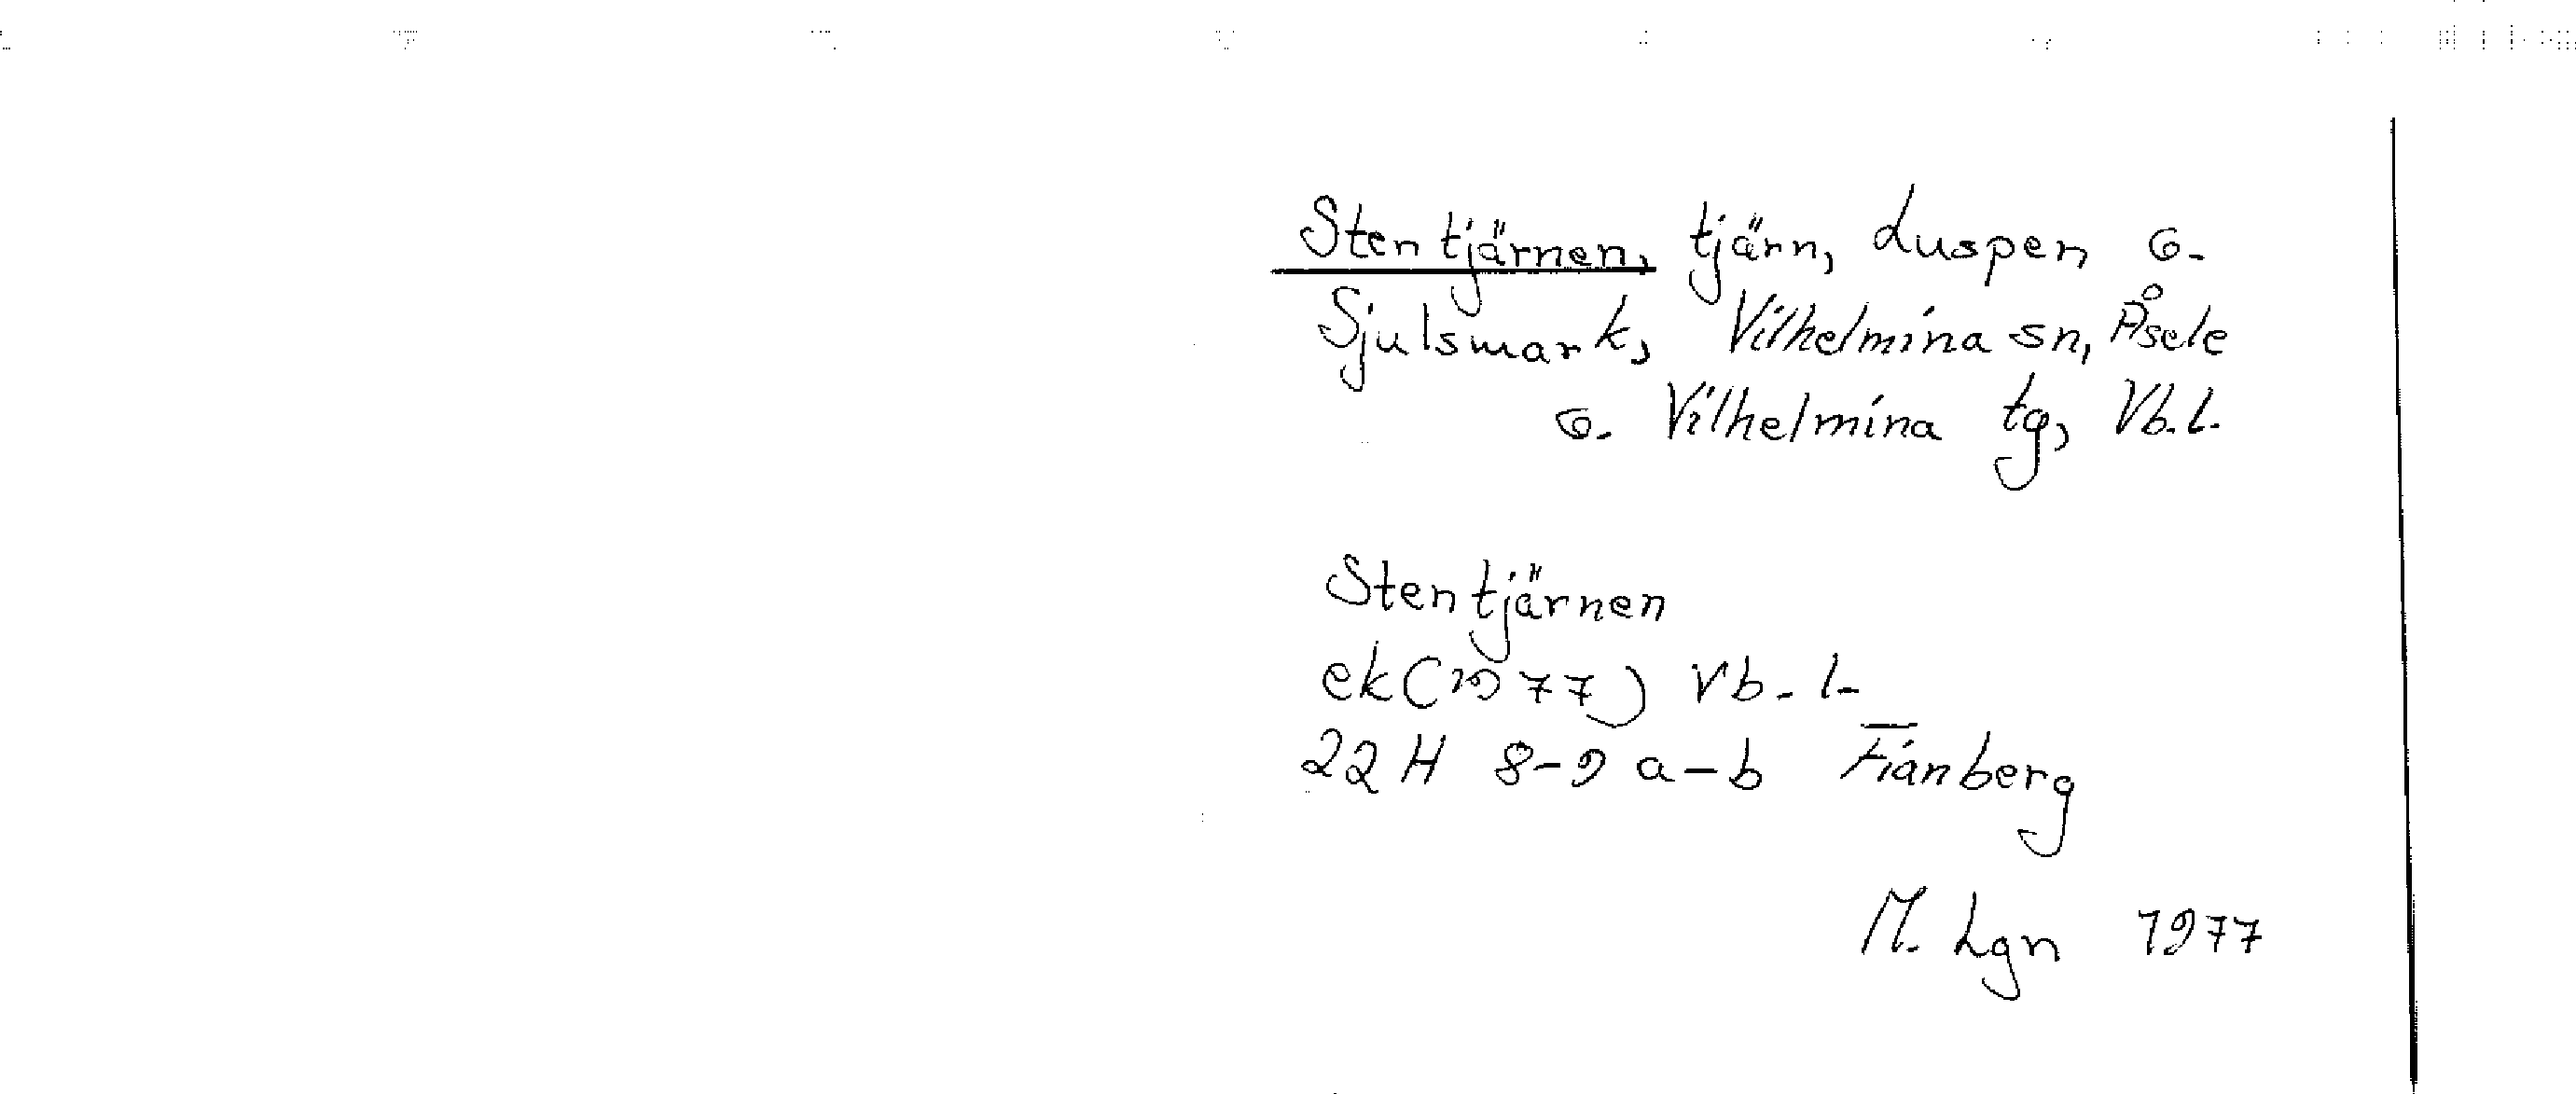 Stentjärnen, tjärn, Luspen o.
Sjulsmark, Vilhelmina sn, Åsele
o. Vilhelmina tg, Vb. l.
Stentjärnen
ek (1977) Vb. l.
22 H 8-9 a-b Fianberg
M. Lgn 1977